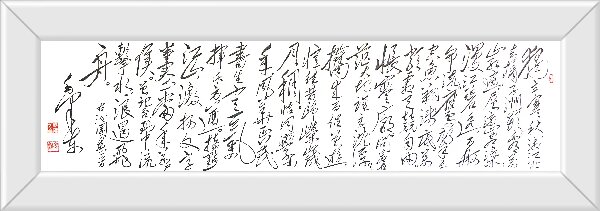 独立寒秋湘江
北去橘子洲头看万
山红遍层林尽染
漫江碧透百舸
争流鹰击长空
鱼翔浅底万类
霜天竞自由
怅寥廓问苍
茫大地谁主沉浮
携来百侣曾游
忆往昔峥嵘岁
月稠恰同学少
年风华正茂
书生意气
挥斥方遒指点
江山激扬文字
粪土当年万户
侯曾记否到中流
击水浪遏飞
舟
毛泽东